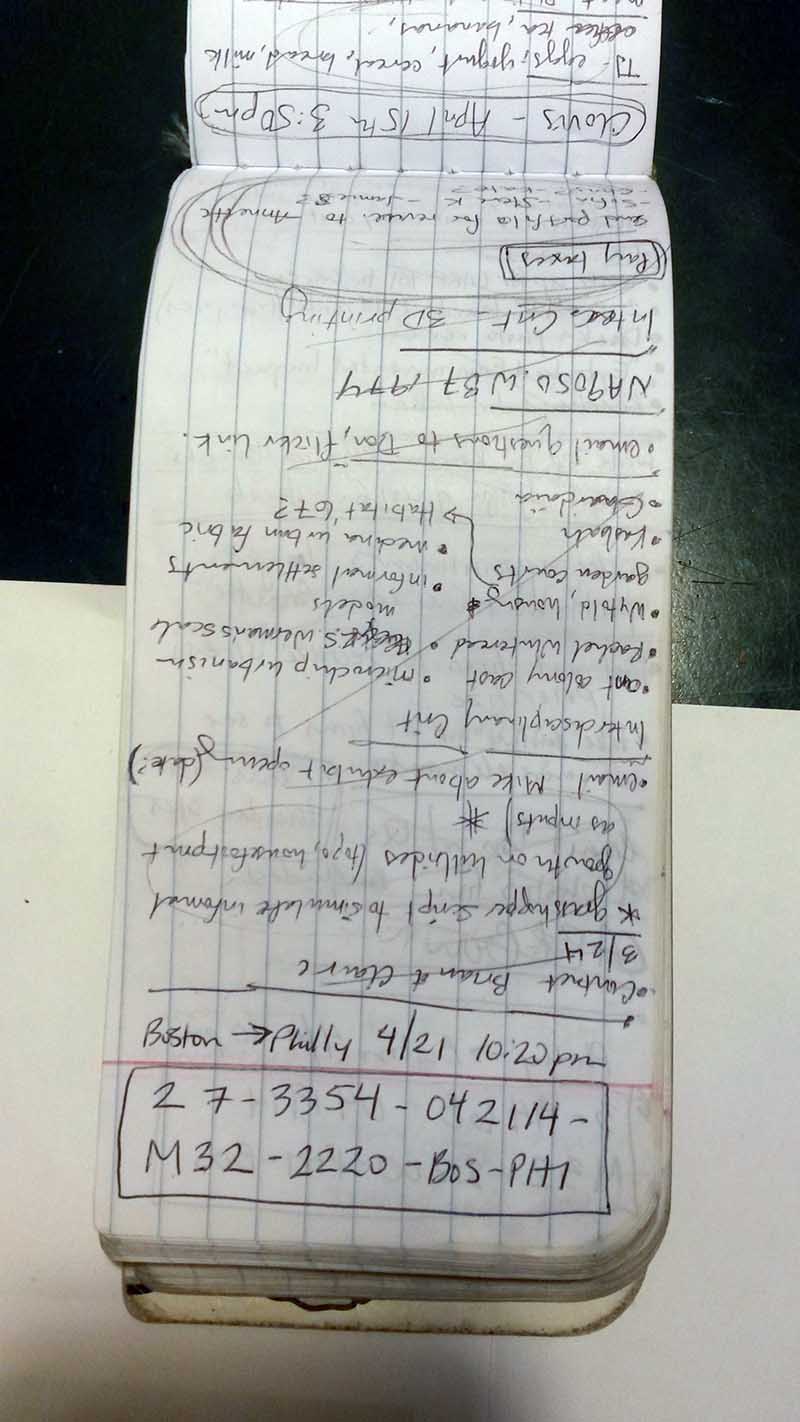 27-3354-042114-
M32-2220-BOS-PHI
Boston → Philly 4/21 10:20pm
• Contact Brian &
3/24
* grasshopper script to simulate informal
growth on hillsides (topo, housefootprint
as inputs) *
• email Mike about exhibit opening (date?)
Interdisciplinary Crit
• ant colony cast • microchip urbanism
• Rachel Whiteread • S. Werman's scale
models
• Wytold, housing • informal settlements
garden courts • medina urban fabric
• Kasbah → Habitat '67?
• Ghardaia
• email questions to Don, flickr link.
NA9050.W37 1974
Crit - 3D printing
Pay taxes
Send portfolio for review to Annette
- Steve K - Jamie S?
Clovis - April 15th 3:50pm
TJ - eggs, yogurt, cereal, bread, milk
tea, bananas,